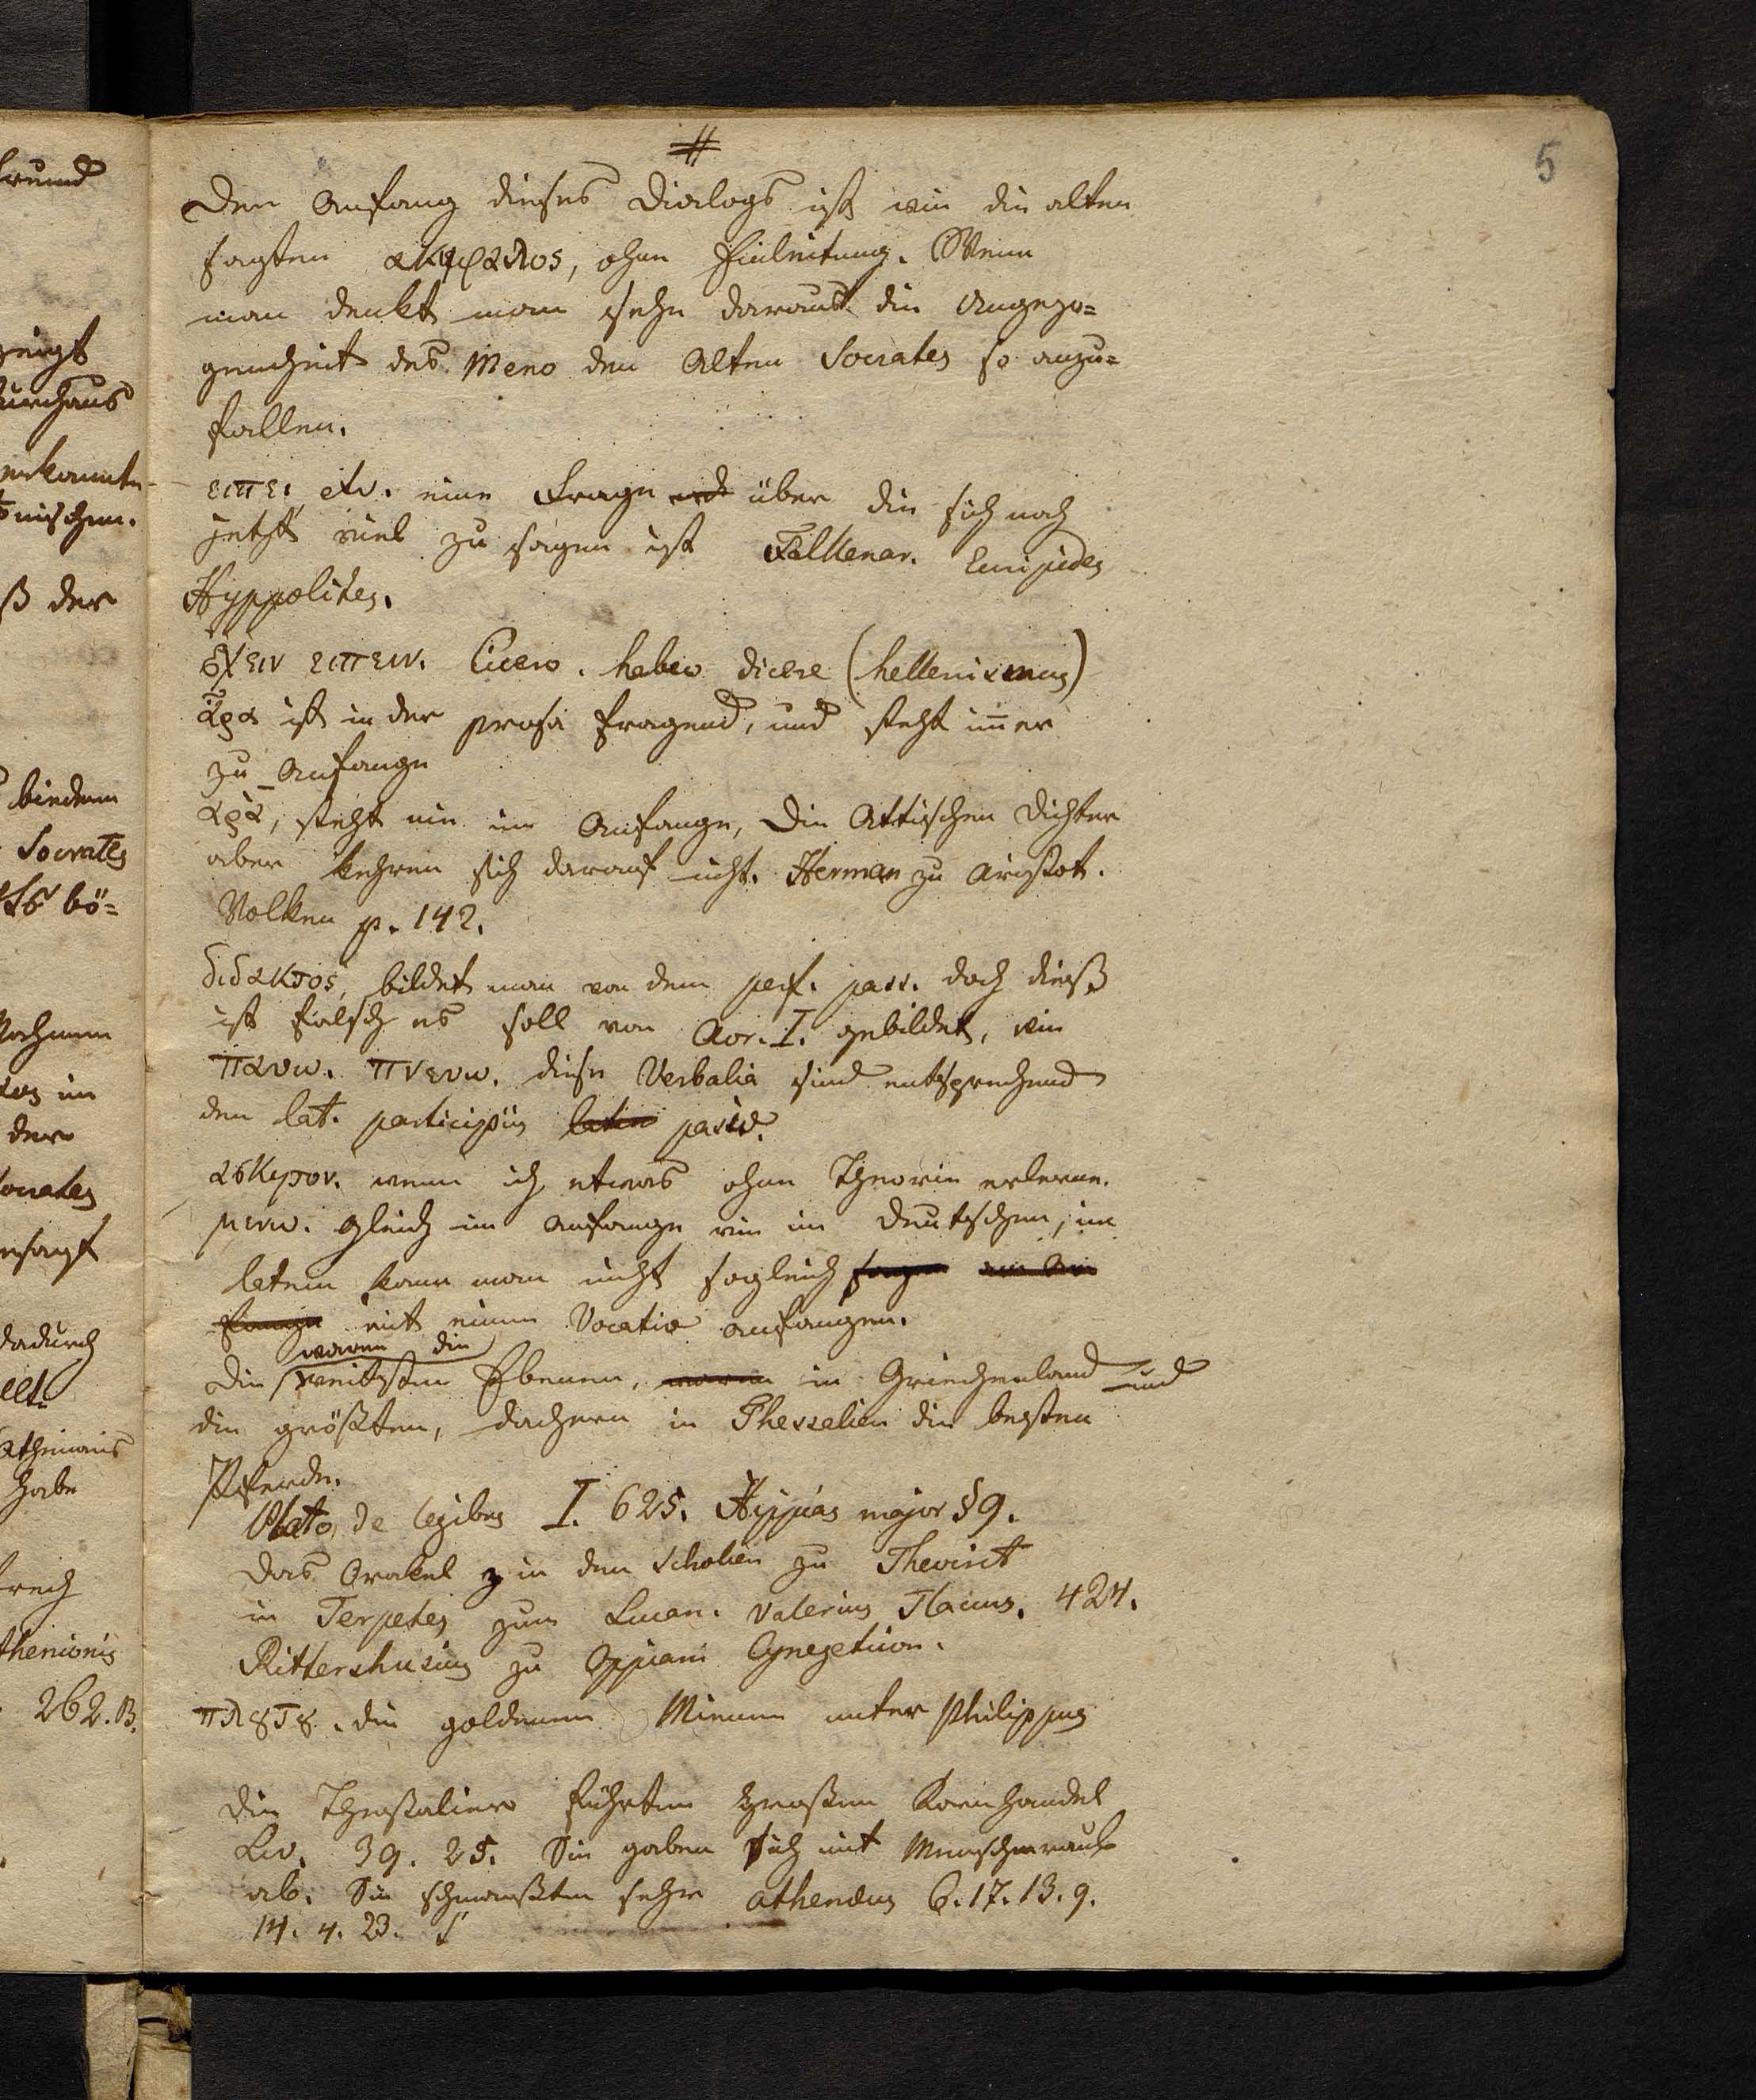 #
5
Der Anfang dieses Dialogs ist wie die alten
sagten ακεφαλος, ohne Einleitung. Wenn
man denkt man sehe daraus die Ungezo=
genheit des Meno den Alten Socrates so anzu=
fallen.
ειπε, etc. eine Frage über die sich noch
jetzt viel zu sagen ist Falkenar. Euripides
Hyppolites.
εχειν ειπειν. Cicero. habeo dicere (hellenismus)
ἆρα ist in der prosa fragend, und steht im̄er
zu Anfange
αρα, steht nie im Anfange, Die Attischen Dichter
aber kehren sich darauf nicht. Herman zu Aristot.
Wolken p. 142.
διδακτος, bildet man von dem perf. pass. doch dieß
ist falsch es soll von Aor. I. gebildet, wie
παυω. πνευω. diese Verbalia sind entsprechend
den lat. participiis passiv.
ασκητον. wenn ich etwas ohne Theorie erlerne.
μενω. gleich im Anfange wie im Deutschen, im
latein kann man nicht sogleich
mit einem Vocativ anfangen.
waren die
Die weitesten Ebenen, in Griechenland und
die größten, dachern in Thessalien die besten
Pferde.
Plato, de legibus I. 625. Hippias major § 9.
Das Orakel in den Scholien zu Theocrit
in Terpetes zum Lucan. Valerius Flaccus. 424.
Rittershusius zu Oppiani Cynegeticon.
πλȣτȣ. die goldenen Minen unter Philippus
Die Thessalier führten großen Kornhandel
Liv. 39. 25. Sie gaben sich mit Menschenraub
ab. Sie schmaußten sehr Athenæus 6. 17. 13. 9.
14. 4. 23.